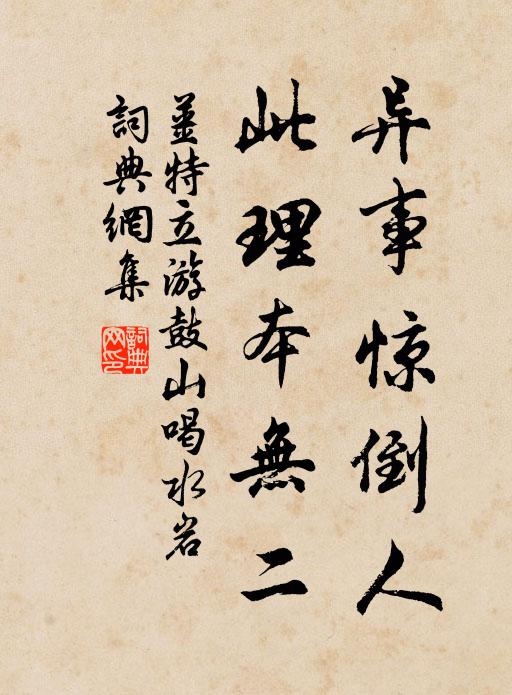 异事惊倒人
此理本無二
姜特立游鼓山喝水岩
詞典網集
詞典網印